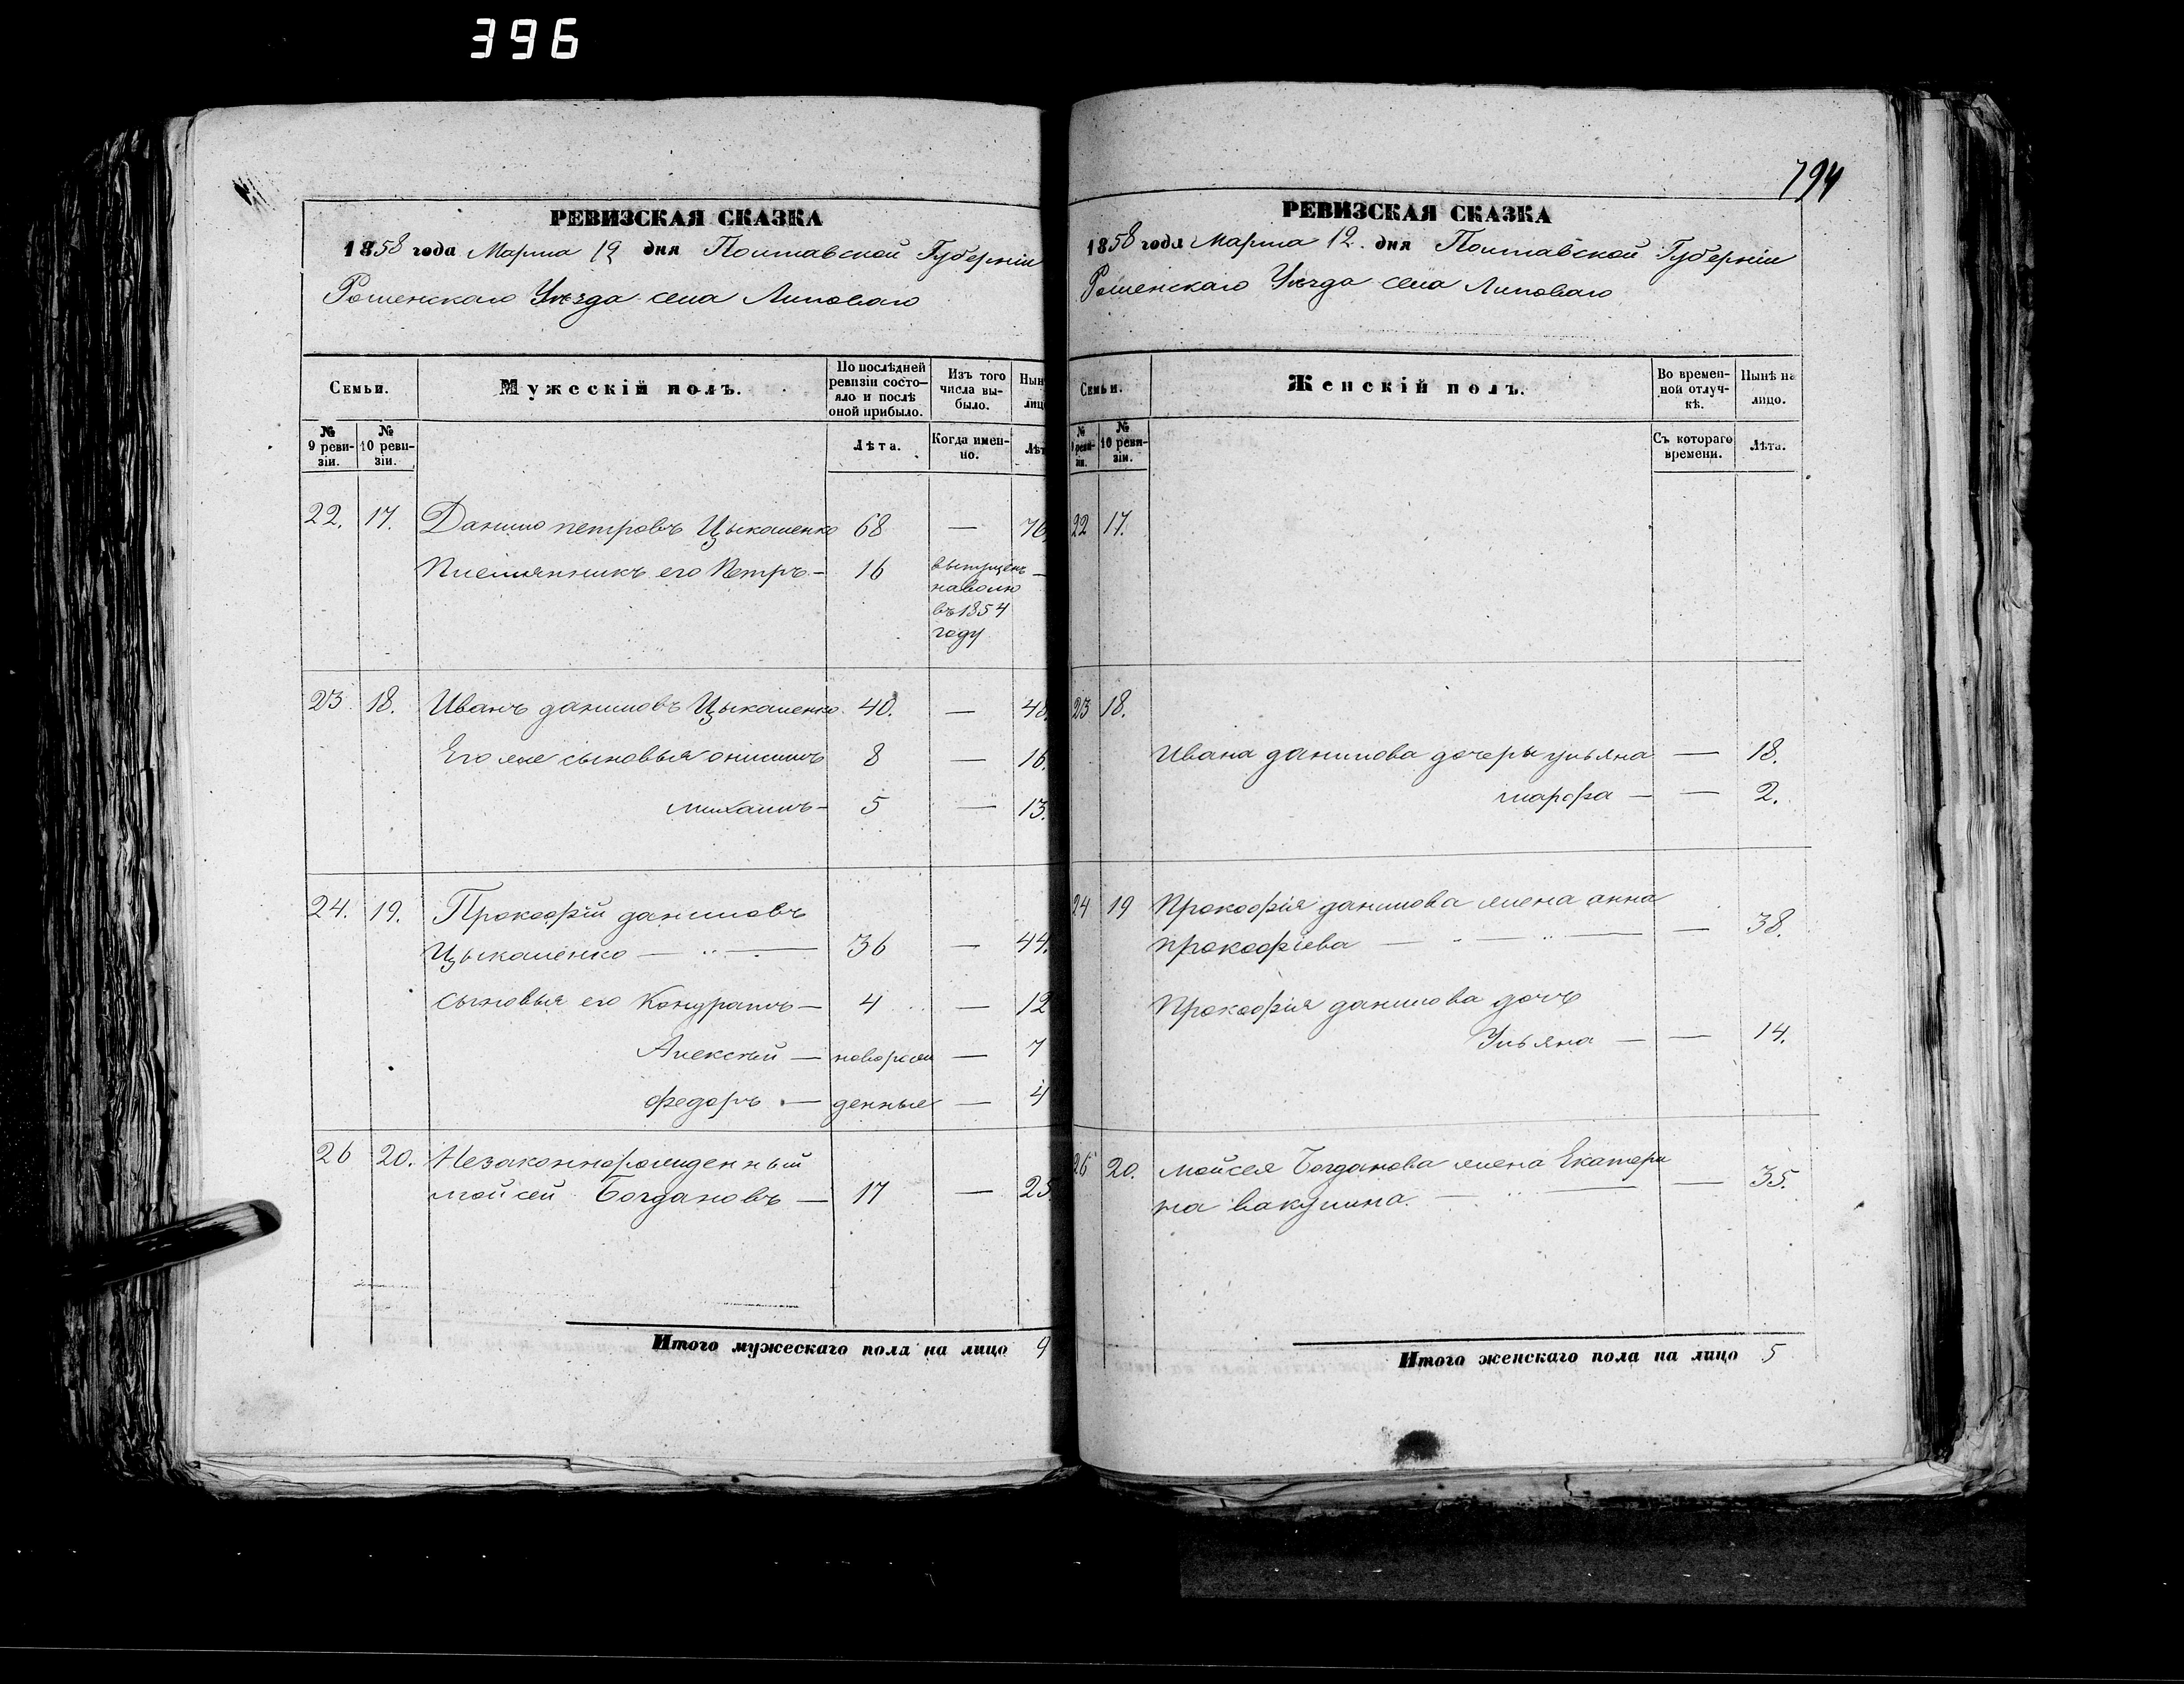 396
794
РЕВИЗСКАЯ СКАЗКА
1858 года Марта 12 дня Полтавской Губерніи
Роменскаго Уезда села Липоваго
Семьи.
Мужескій полъ.
По послѣдней ревизіи состо-
яло и послѣ
оной прибыло.
Изъ того
числа вы-
было.
Нын
лицо
№
9 реви-
зіи.
№
10 реви-
зіи.
Лѣта.
Когда имен-
но.
Лѣт
22. 17. Данило петровъ Цыкаленко 68 — 76.
Племянникъ его Петръ — 16 выпущенъ —
наволю
въ 1854
году
23. 18. Иванъ даниловъ Цыкаленко 40. — 48.
Его же сыновья онисимъ 8 — 16.
михаилъ — 5 — 13.
24. 19. Прокофій даниловъ
Цыкаленко — 36 — 44.
сыновья его Кондратъ — 4 — 12
Алексѣй — новорож — 7
федоръ — денные — 4
26 20. Незаконнорожденный
мойсей Богдановъ — 17 — 25.
Итого мужескаго пола на лицо 9
РЕВИЗСКАЯ СКАЗКА
1858 года Марта 12. дня Полтавской Губерніи
Роменскаго Уезда села Липоваго
Семьи.
Женскій полъ.
Во времен-
ной отлуч-
кѣ.
Нынѣ на
лицо.
№
9 реви-
зіи.
№
10 реви-
зіи.
Съ котораго
времени.
Лѣта.
22 17.
23 18.
Ивана данилова дочеры ульяна — 18.
марфа — — 2.
24 19 Прокофія данилова жена анна
прокофіева — — 38.
Прокофія данилова дочь
Ульяна — — 14.
26 20. мойсея Богданова жена Екатери
на вакулина. — — 35.
Итого женскаго пола на лицо 5